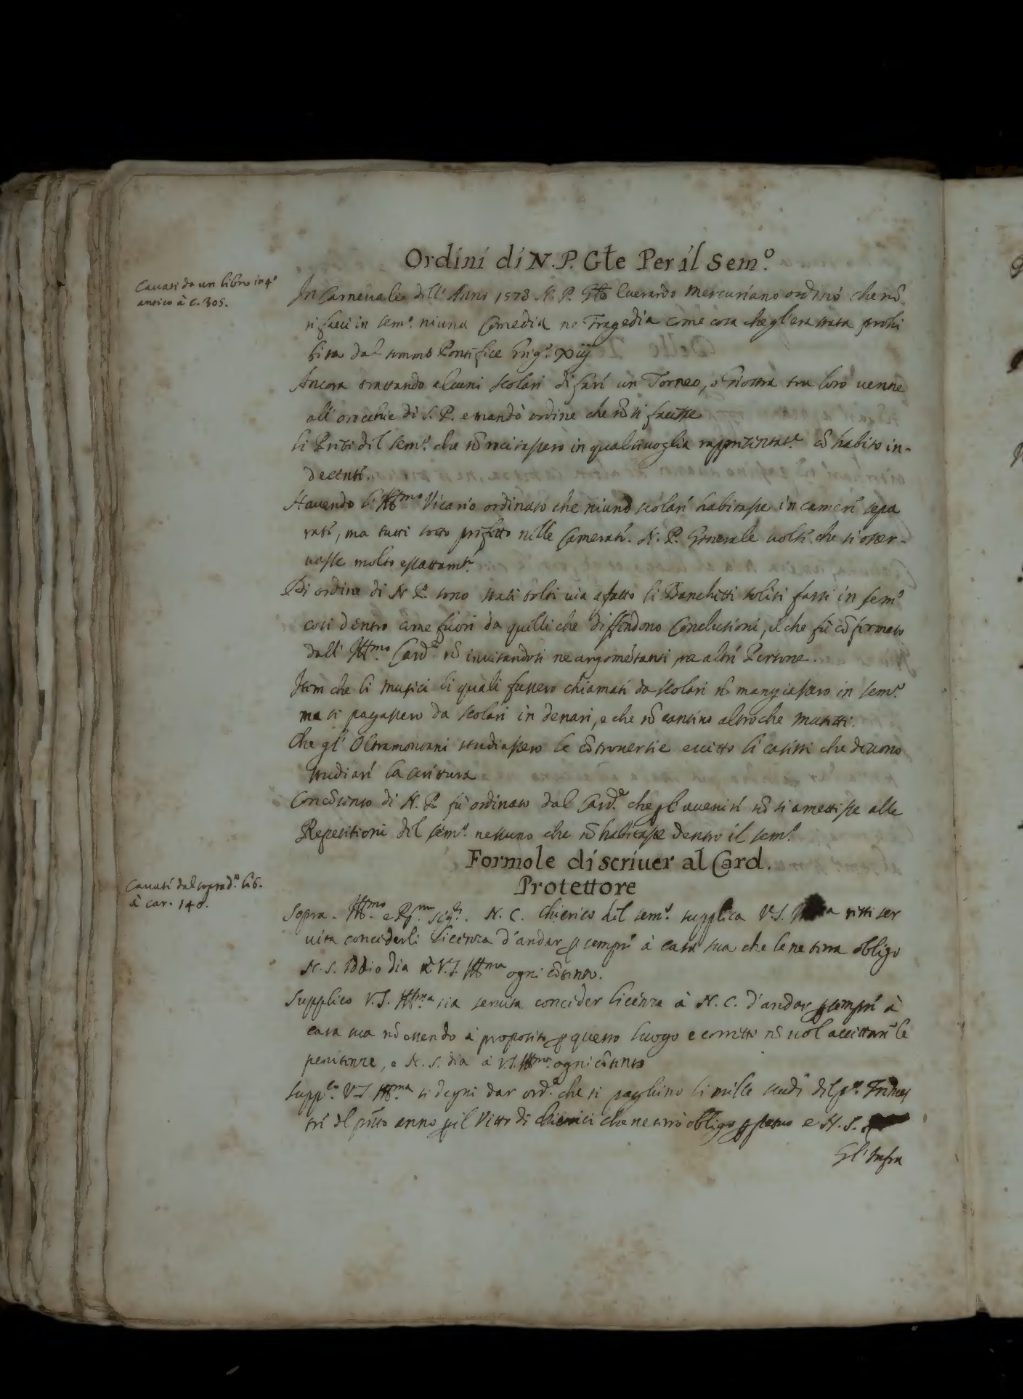 Ordini di N. P. Gñle Per il Sem.º
Cavati da un libro in 4º
antico à c. 305.
In Carnevale dell' Anno 1578 N. P. Gñle Everardo Mercuriano ordinò che nō
si facci in sem.º niuna Comedia ne Tragedia come cosa che gl'era stata prohi
bita dal sommo Pontefice Greg.º XIIJ
Ancora trattando alcuni scolari di fare un Torneo, o Giostra tra loro venne
all' orecchie di S. P. e mandò ordine che nō si facesse
li Preti del sem.º che nō recitassero in qualsivoglia cō habito in-
decente.
Havendo l' Ill.mo Vicario ordinato che niuno scolare habitasse in camere sepa
rate, ma tutti sotto prefetto nelle Camerate. N. P. Generale volse che si osser-
vasse molto esattam.te
Di ordine di N. P. sono stati tolti via afatto li Banchetti soliti farsi in sem.º
così dentro come fuori da quelli che diffendono Conclusioni, il che fù cōfermato
dall' Ill.mo Card.le nō invitandosi ne argomētanti ne altre Persone.
Item che li musici li quali fussero chiamati da scolari nō mangiassero in sem.º
ma si pagassero da scolari in denari, e che nō cantino altro che mutetti.
Che gl' Oltramontani studiassero le cōtroversie eccetto li casisti che devono
studiare la scrittura
Con cōsenso di N. P. fù ordinato dal Card.le che p l'avenire nō si amettesse alle
Repetitioni del sem.º nessuno che nō habitasse dentro il sem.º
Formole di scriver al Card.
Protettore
Cavati dal soprad.º lib.
à car. 140.
Sopra. Ill.mo e R.mo Sig.re. N. C. chierico del sem.º supplica V. S. resti ser
vita concederli licenza d'andar p sempre à casa sua che le ne terra obligo
N. S. Iddio dia à V. S. Ill.ma ogni cōtento.
Supplico V. S. Ill.ma sia servita conceder licenza à N. C. d'andar p sempre à
casa sua nō essendo à proposito p questo luogo e nō vol accettare le
penitenze, e N. S. dia à V. S. Ill.ma ogni cōtento
Supp.co V. S. Ill.ma si degni dar ord.e che si paghino li mille scudi del
del pñte anno p il Vitto di chierici che ne terrò obligo e N. S.
Gl' Infra